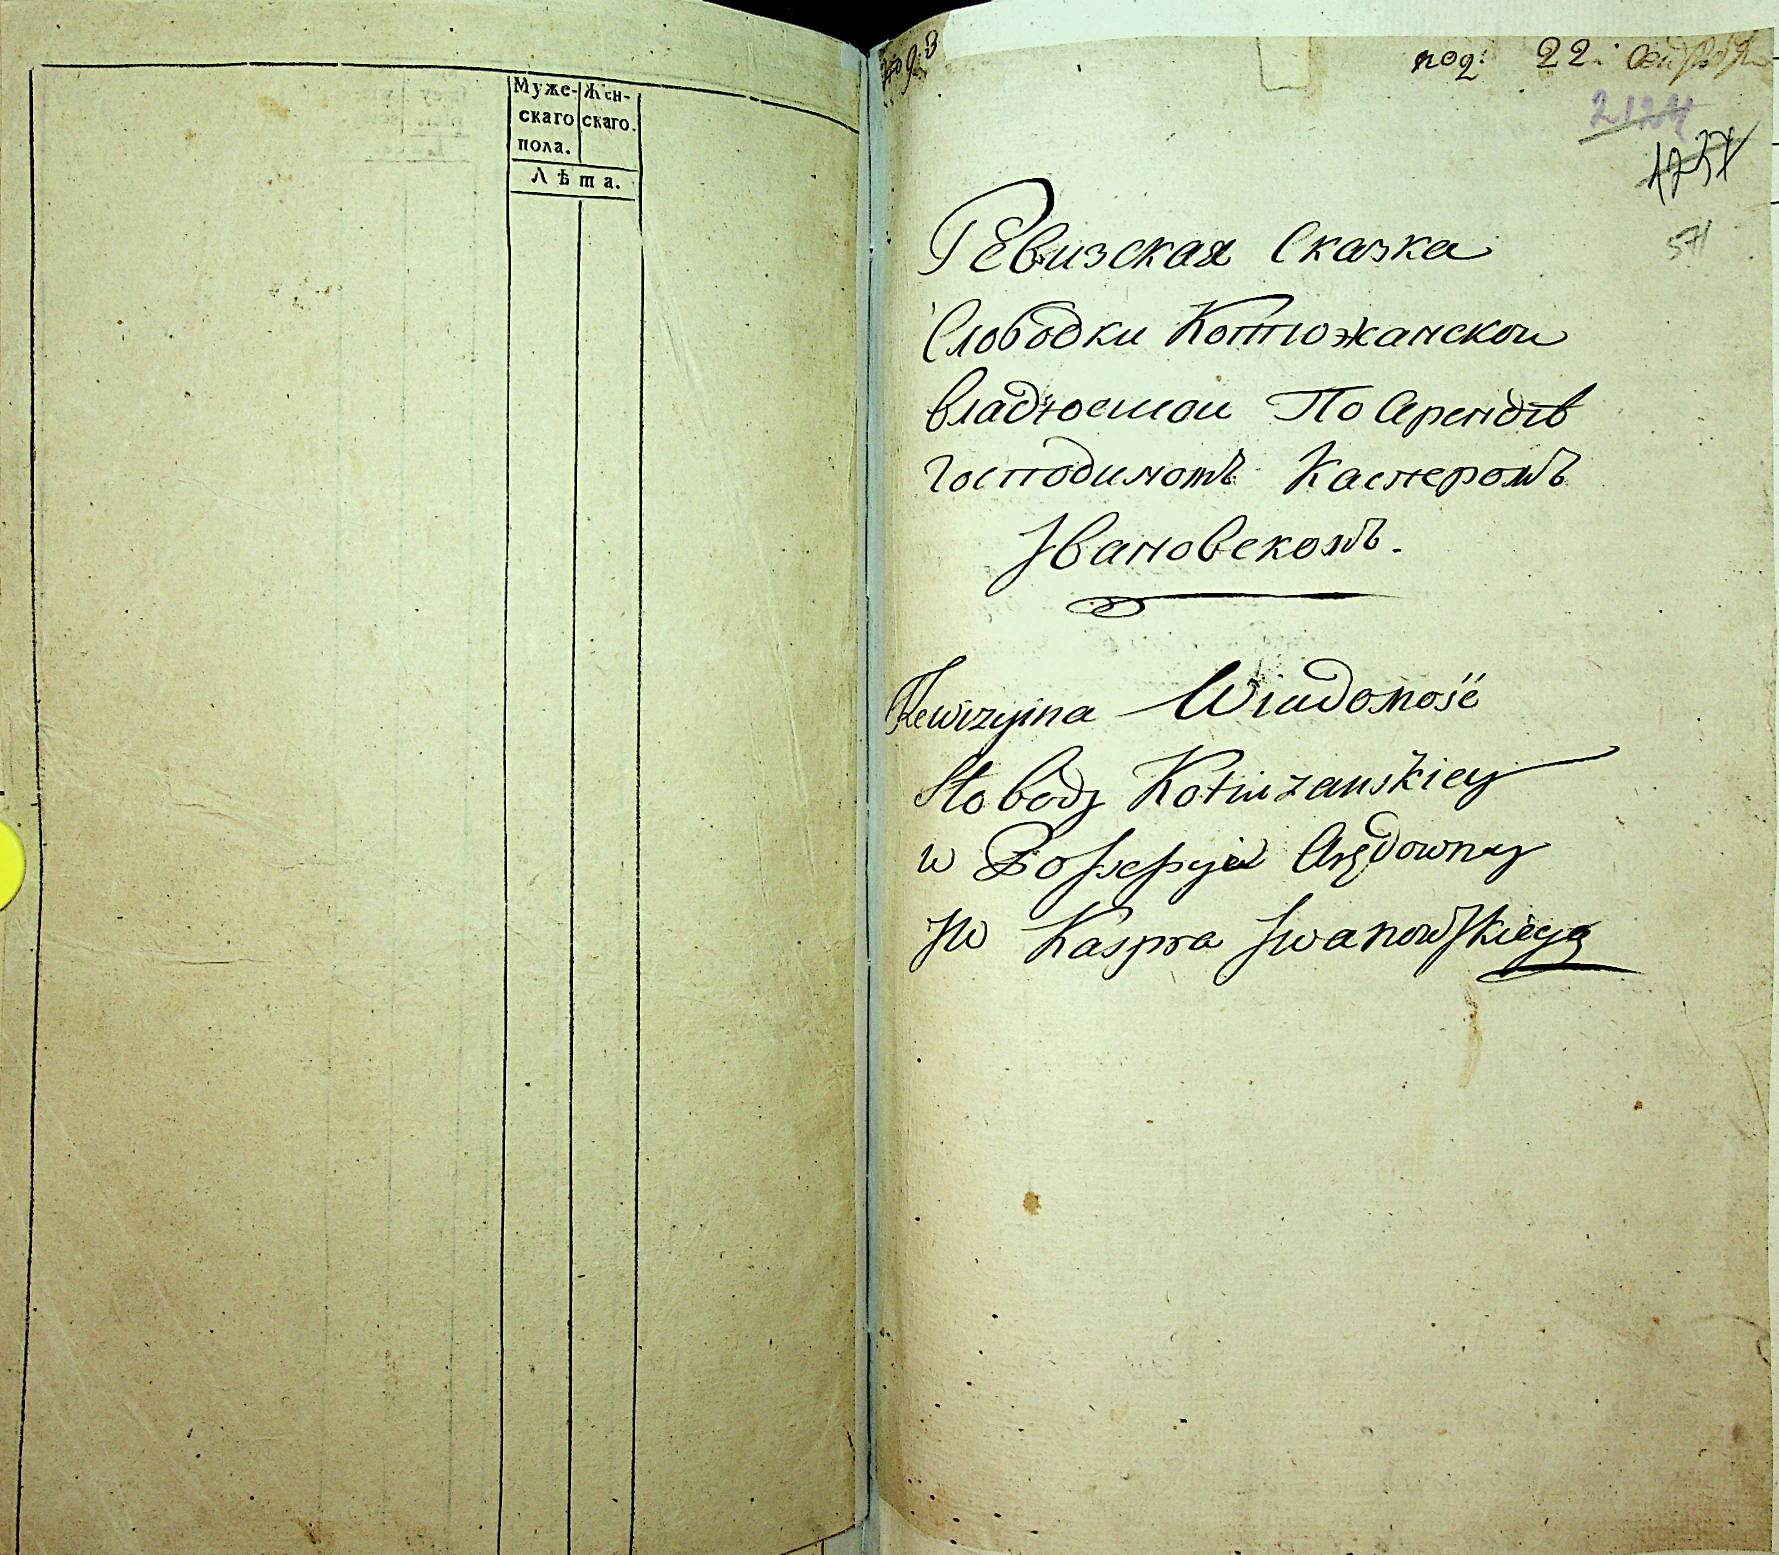 Муже- Жен-
скаго скаго.
пола.
Лѣта.
под: 22:
2124
1237
571
Ревизская Сказка
Слободки Котюжанскои
владѣемои По Арендѣ
Господиномъ Касперомъ
Iвановскомъ.
Rewizyina Wiadomość
Słobody Kotiużanskiey
w Possessyi Arędowny
JW Kaspra Iwanowskiego